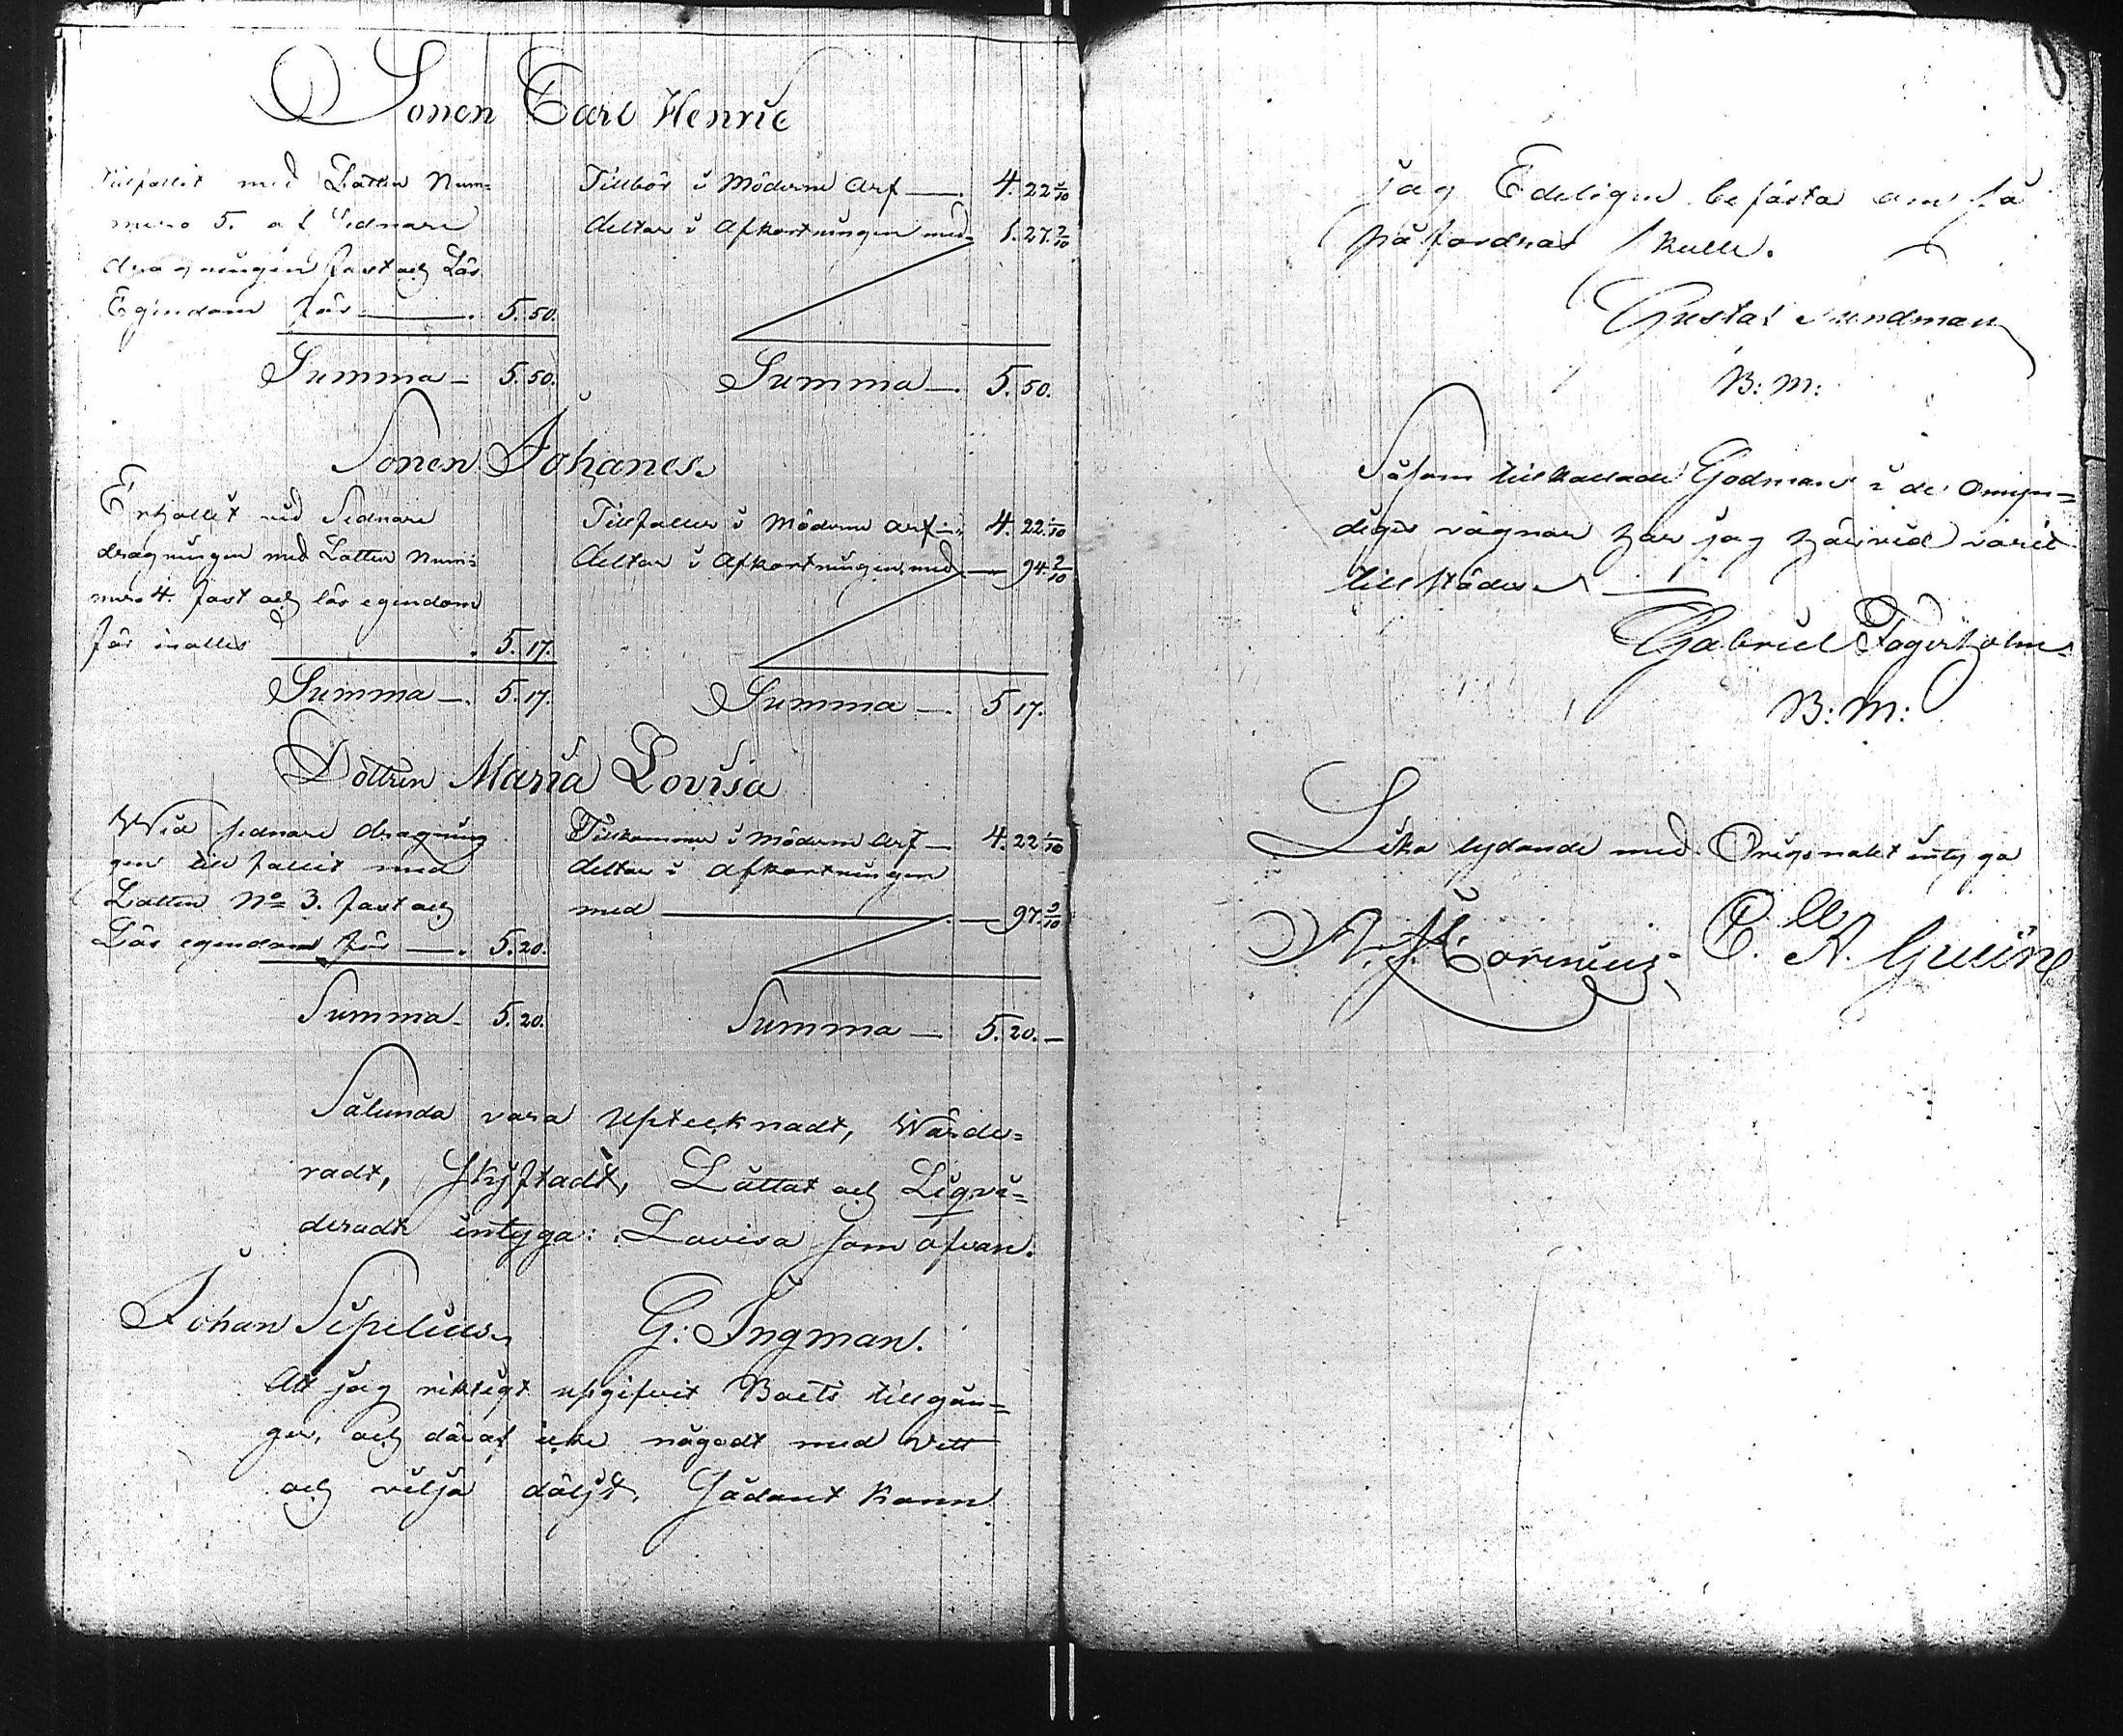 Sonen Carl Henric
Tilfallit med Lotten Num=
mero 5. af Sednare
dragningen fast och Lös
Egendom för —. 5.50.
Summa — 5.50.
Tillkör i Möderne Arf —. 4. 22 1/10
deltar i Afkortningen med 1. 27. 9/10
Summa —. 5. 50.
Sonen Johanes.
Erhollit vid Sednare
dragningen med Lotten Num=
mero 4. fast och lös egendom
för inalles . 5. 17.
Summa —. 5. 17.
Tillfaller i Möderne arf — 4. 22 1/10
deltar i Afkortningen med — 94. 9/10
Summa —. 5 17.
Dottren Maria Lovisa
Wid sednare dragning
gen till fallit med
Lotten No 3. fast och
Lös egendom för —. 5.20.
Summa. 5.20.
Tillkommer i Möderne Arf — 4. 22 1/10
deltar i Afkortningen
med — 97. 9/10
Summa —. 5. 20. —
Sålunda vara Uptecknadt, Wärde=
radt, Skyftadt, Lottat och Liqvi=
deradt intyga: Lovisa som ofvan.
Johan Sipelius
G: Ingman.
Att jag riktigt upgifvit Boets tillgån=
gar, och däraf icke någodt med vett
och vilja döljt, Sådant kann
jag Edeligen befästa om så
påfordras skulle.
Gustaf Sundman
B: M:
Såsom tillkallade Godman i de omyn=
diges vägnar har jag härvid varit
tillstädes
Gabriel Fagerholm
B: M:
Lika lydande med Originalet intyga